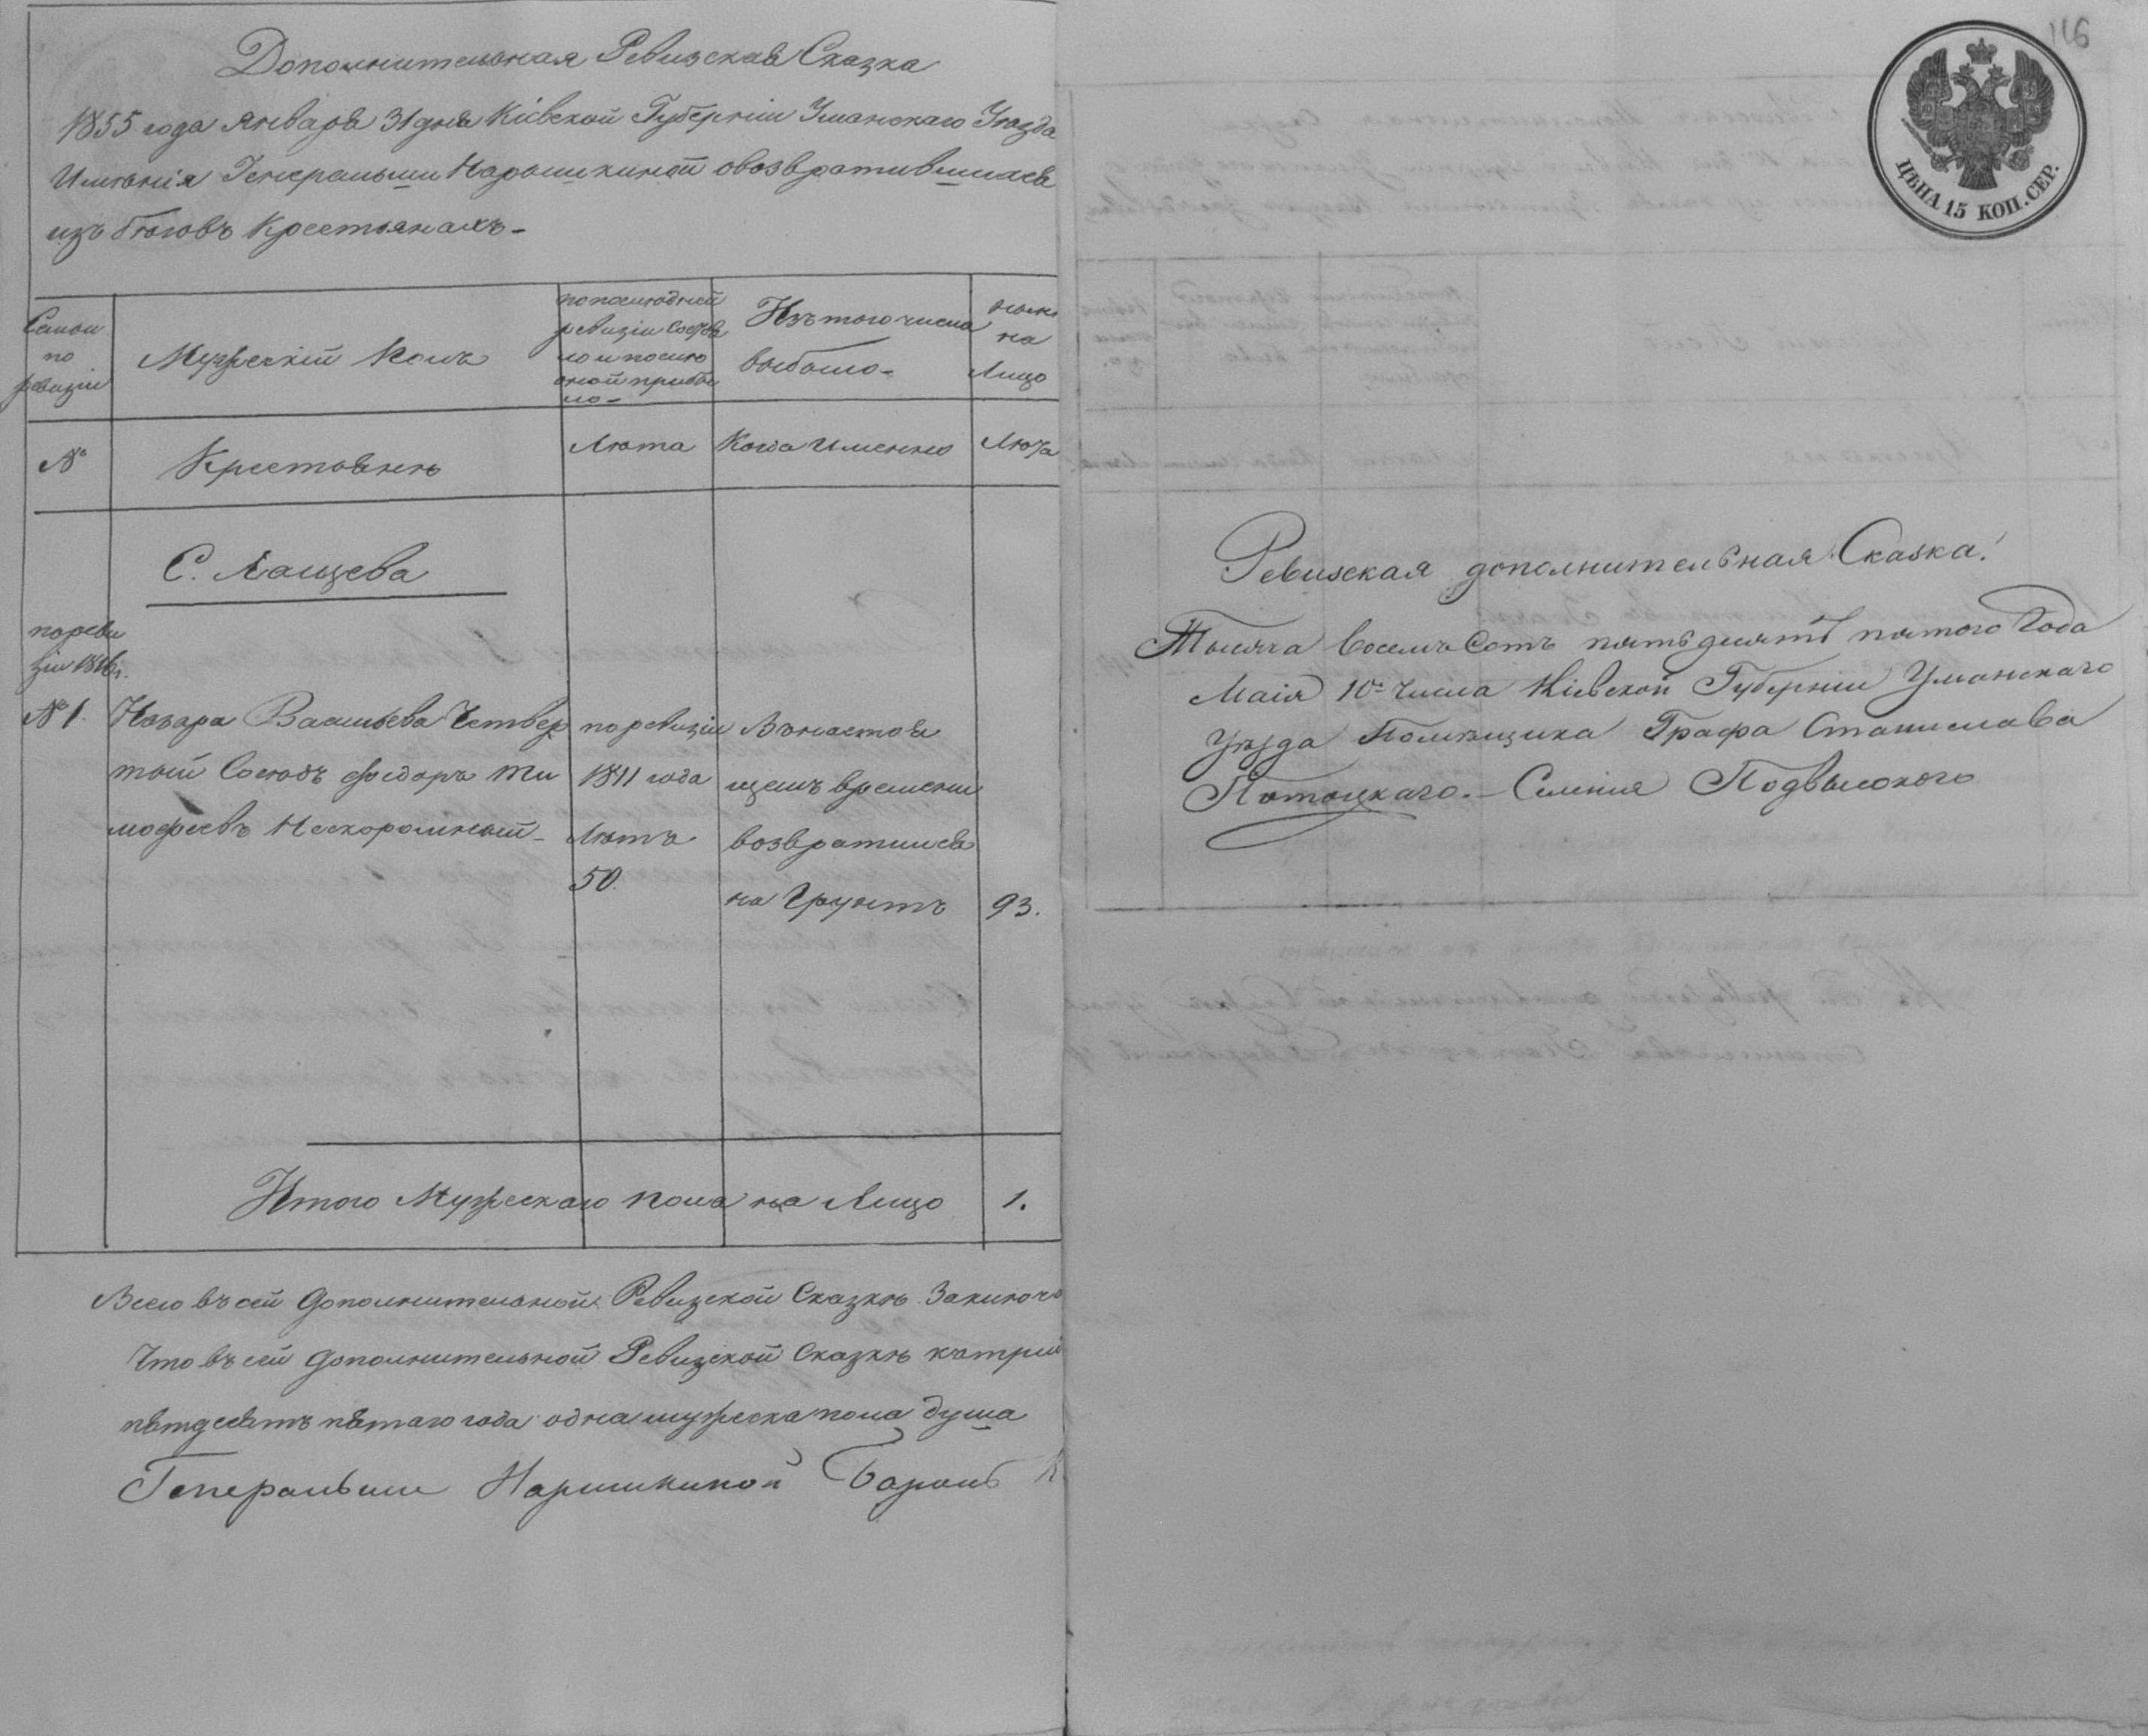 Дополнительная Ревизская Сказка
1855 года января 31 дня Кіевской Губерніи Уманскаго Уѣзда
Имѣнія Генеральши Нарышкиной о возвратившихся
изъ бѣговъ Крестьянахъ-
Семьи
по
ревизіи
Мужескій Полъ
по последней
ревизіи состоя
ло и после
оной прибы
ло-
Изъ того числа
выбыло-
ныне
на
Лицо
№
Крестьяне
Лѣта
Когда именно
Лѣта
С. Лащева
по реви
зіи 18 г.
№ 1.
Назара Васильева Четвер
тый Соседъ Федоръ Ти
мофеевъ Нескоромный-
по ревизіи
1811 года
Лѣтъ
50.
Въ настоя
щемъ времени
возвратился
на Грунтъ
93.
Итого Мужескаго пола на Лицо
1.
Всего въ сей дополнительной Ревизской Сказкѣ Заключ
Что въ сей дополнительной Ревизской Сказкѣ
пятдесятъ пятаго года одна мужеска пола душа
Генеральши Нарышкиной
116
ЦѢНА 15 КОП. СЕР.
Ревизская дополнительная Сказка!
Тысяча восемь Сотъ пятьдесятъ пятого Года
Маія 10го Числа Кіевской Губерніи Уманскаго
Уѣзда Помѣщика Графа Станислава
Потоцкаго.- Селенія Подвысокого